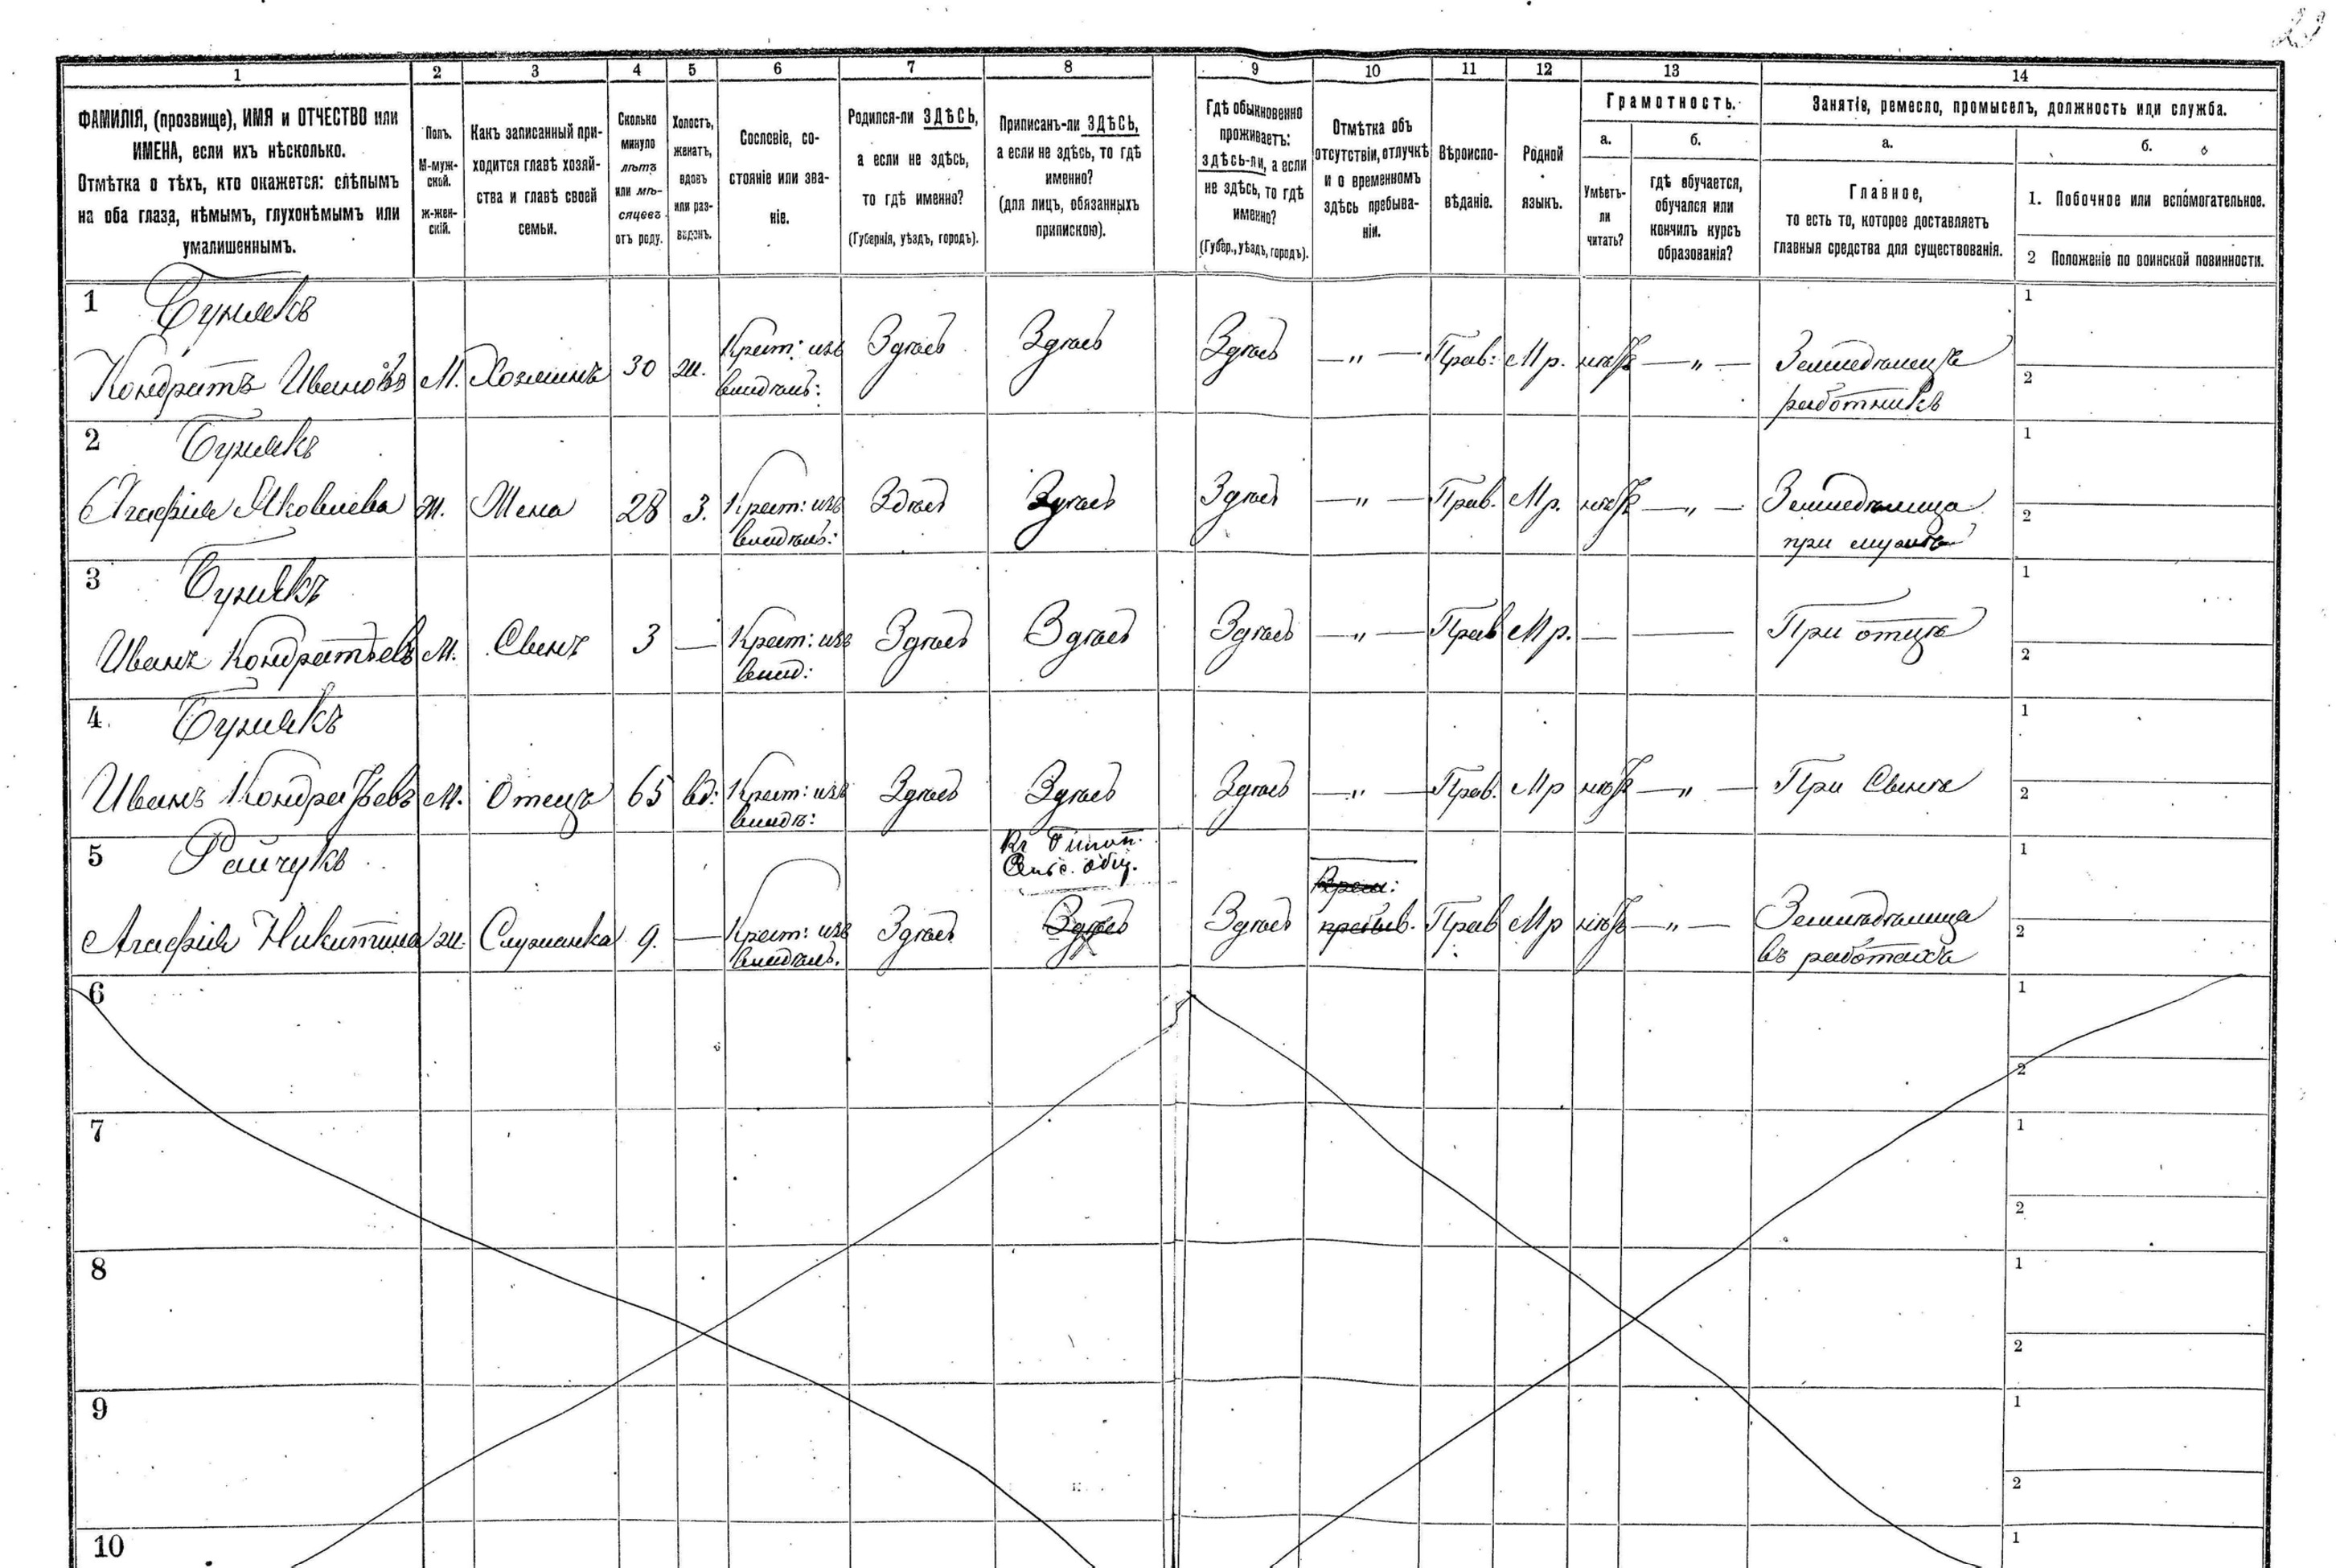 1 2 3 4 5 6 7 8 9 10 11 12 13 14
ФАМИЛІЯ, (прозвище), ИМЯ и ОТЧЕСТВО или
ИМЕНА, если ихъ нѣсколько.
Отмѣтка о тѣхъ, кто окажется: слѣпымъ
на оба глаза, нѣмымъ, глухонѣмымъ или
умалишеннымъ.
Полъ.
М-муж-
ской.
ж-жен-
скій.
Какъ записанный при-
ходится главѣ хозяй-
ства и главѣ своей
семьи.
Сколько
минуло
лѣтъ
или мѣ-
сяцевъ
отъ роду.
Холостъ,
женатъ,
вдовъ
или раз-
веденъ.
Сословіе, со-
стояніе или зва-
ніе.
Родился-ли ЗДѢСЬ,
а если не здѣсь,
то гдѣ именно?
(Губернія, уѣздъ, городъ).
Приписанъ-ли ЗДѢСЬ,
а если не здѣсь, то гдѣ
именно?
(для лицъ, обязанныхъ
припискою).
Гдѣ обыкновенно
проживаетъ:
здѣсь-ли, а если
не здѣсь, то гдѣ
именно?
(Губер., уѣздъ, городъ).
Отмѣтка объ
отсутствіи, отлучкѣ
и о временномъ
здѣсь пребыва-
ніи.
Вѣроиспо-
вѣданіе.
Родной
языкъ.
Грамотность.
а.
Умѣетъ-
ли
читать?
б.
гдѣ обучается,
обучался или
кончилъ курсъ
образованія?
Занятіе, ремесло, промыселъ, должность или служба.
а.
Главное,
то есть то, которое доставляетъ
главныя средства для существованія.
б.
1. Побочное или вспомогательное.
2 Положеніе по воинской повинности.
1
Кондратъ Ивановъ М. Хозяинъ 30 ж. Крест: изъ Здѣсь Здѣсь Здѣсь — „ — Прав: Мр. нѣтъ — „ — Земледѣлецъ 1
владѣль: работникъ 2
2
Агафія Яковлева ж. Жена 28 З. Крест: изъ Здѣсь Здѣсь Здѣсь — „ — Прав. Мр. нѣтъ — „ — Земледѣлица 1
владѣль: при мужѣ 2
3
Иванъ Кондратьевъ М. Сынъ 3 — Крест: изъ Здѣсь Здѣсь Здѣсь — „ — Прав Мр. — — При отцѣ 1
влад: 2
4.
Иванъ Кондратьевъ М. Отецъ 65 вд: Крест: изъ Здѣсь Здѣсь Здѣсь — „ — Прав. Мр нѣтъ — „ — При Сынѣ 1
владѣ: 2
5 Райчукъ
общ.
Врем:
Агафія Никитина ж. Служанка 9. — Крест: изъ Здѣсь Здѣсь Здѣсь пребыв. Прав Мр нѣтъ — „ — Земледѣлица 1
владѣль. въ работахъ 2
6 1
2
7 1
2
8 1
2
9 1
2
10 1